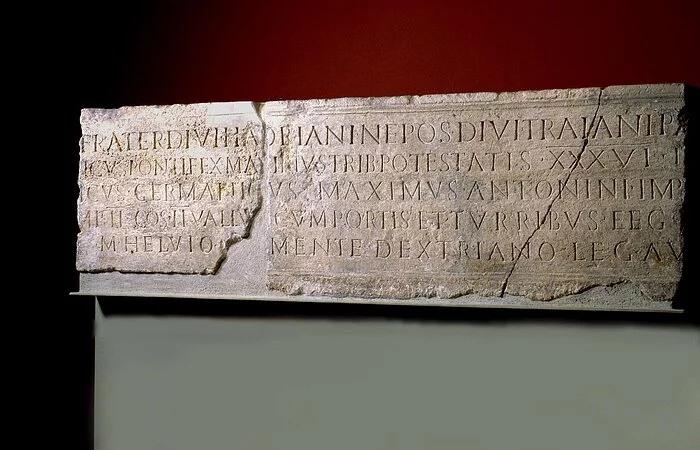 FRATER DIVI HADRIANI NEPOS DIVI TRAIANI PA
ICVS · PONTIFEX MAXIMVS TRIB POTESTATIS · XXXVI · I
CVS · GERMANICVS · MAXIMVS ANTONINI · IMP
MP II · COS II VALLV CVM PORTIS ET TVRRIBVS FEC
M HELVIO MENTE DEXTRIANO · LEG · AV